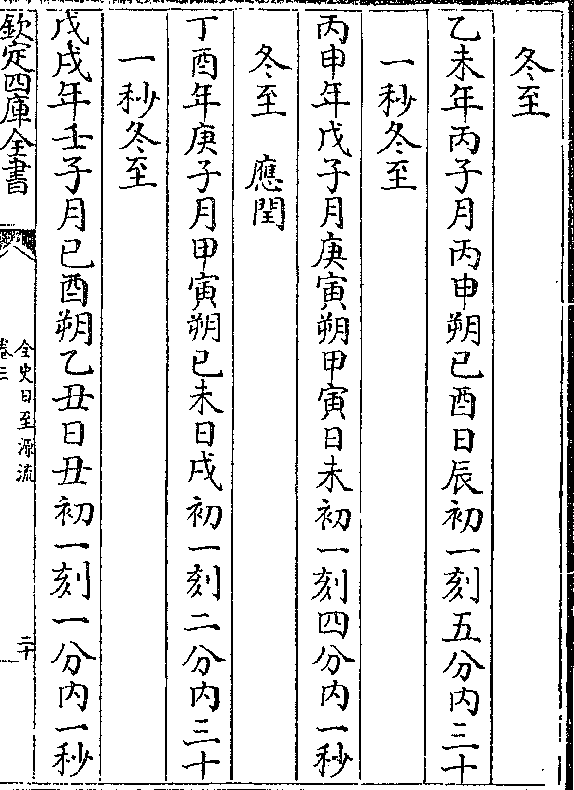 冬至
乙未年丙子月丙申朔已酉日辰初一刻五分内三十
一秒冬至
丙申年戊子月庚寅朔甲寅日未初一刻四分内一秒
冬至　應閏
丁酉年庚子月甲寅朔已未日戌初一刻二分内三十
一秒冬至
戊戌年壬子月已酉朔乙丑日丑初一刻一分内一秒
欽定四庫全書
全史日至源流
卷三
二十